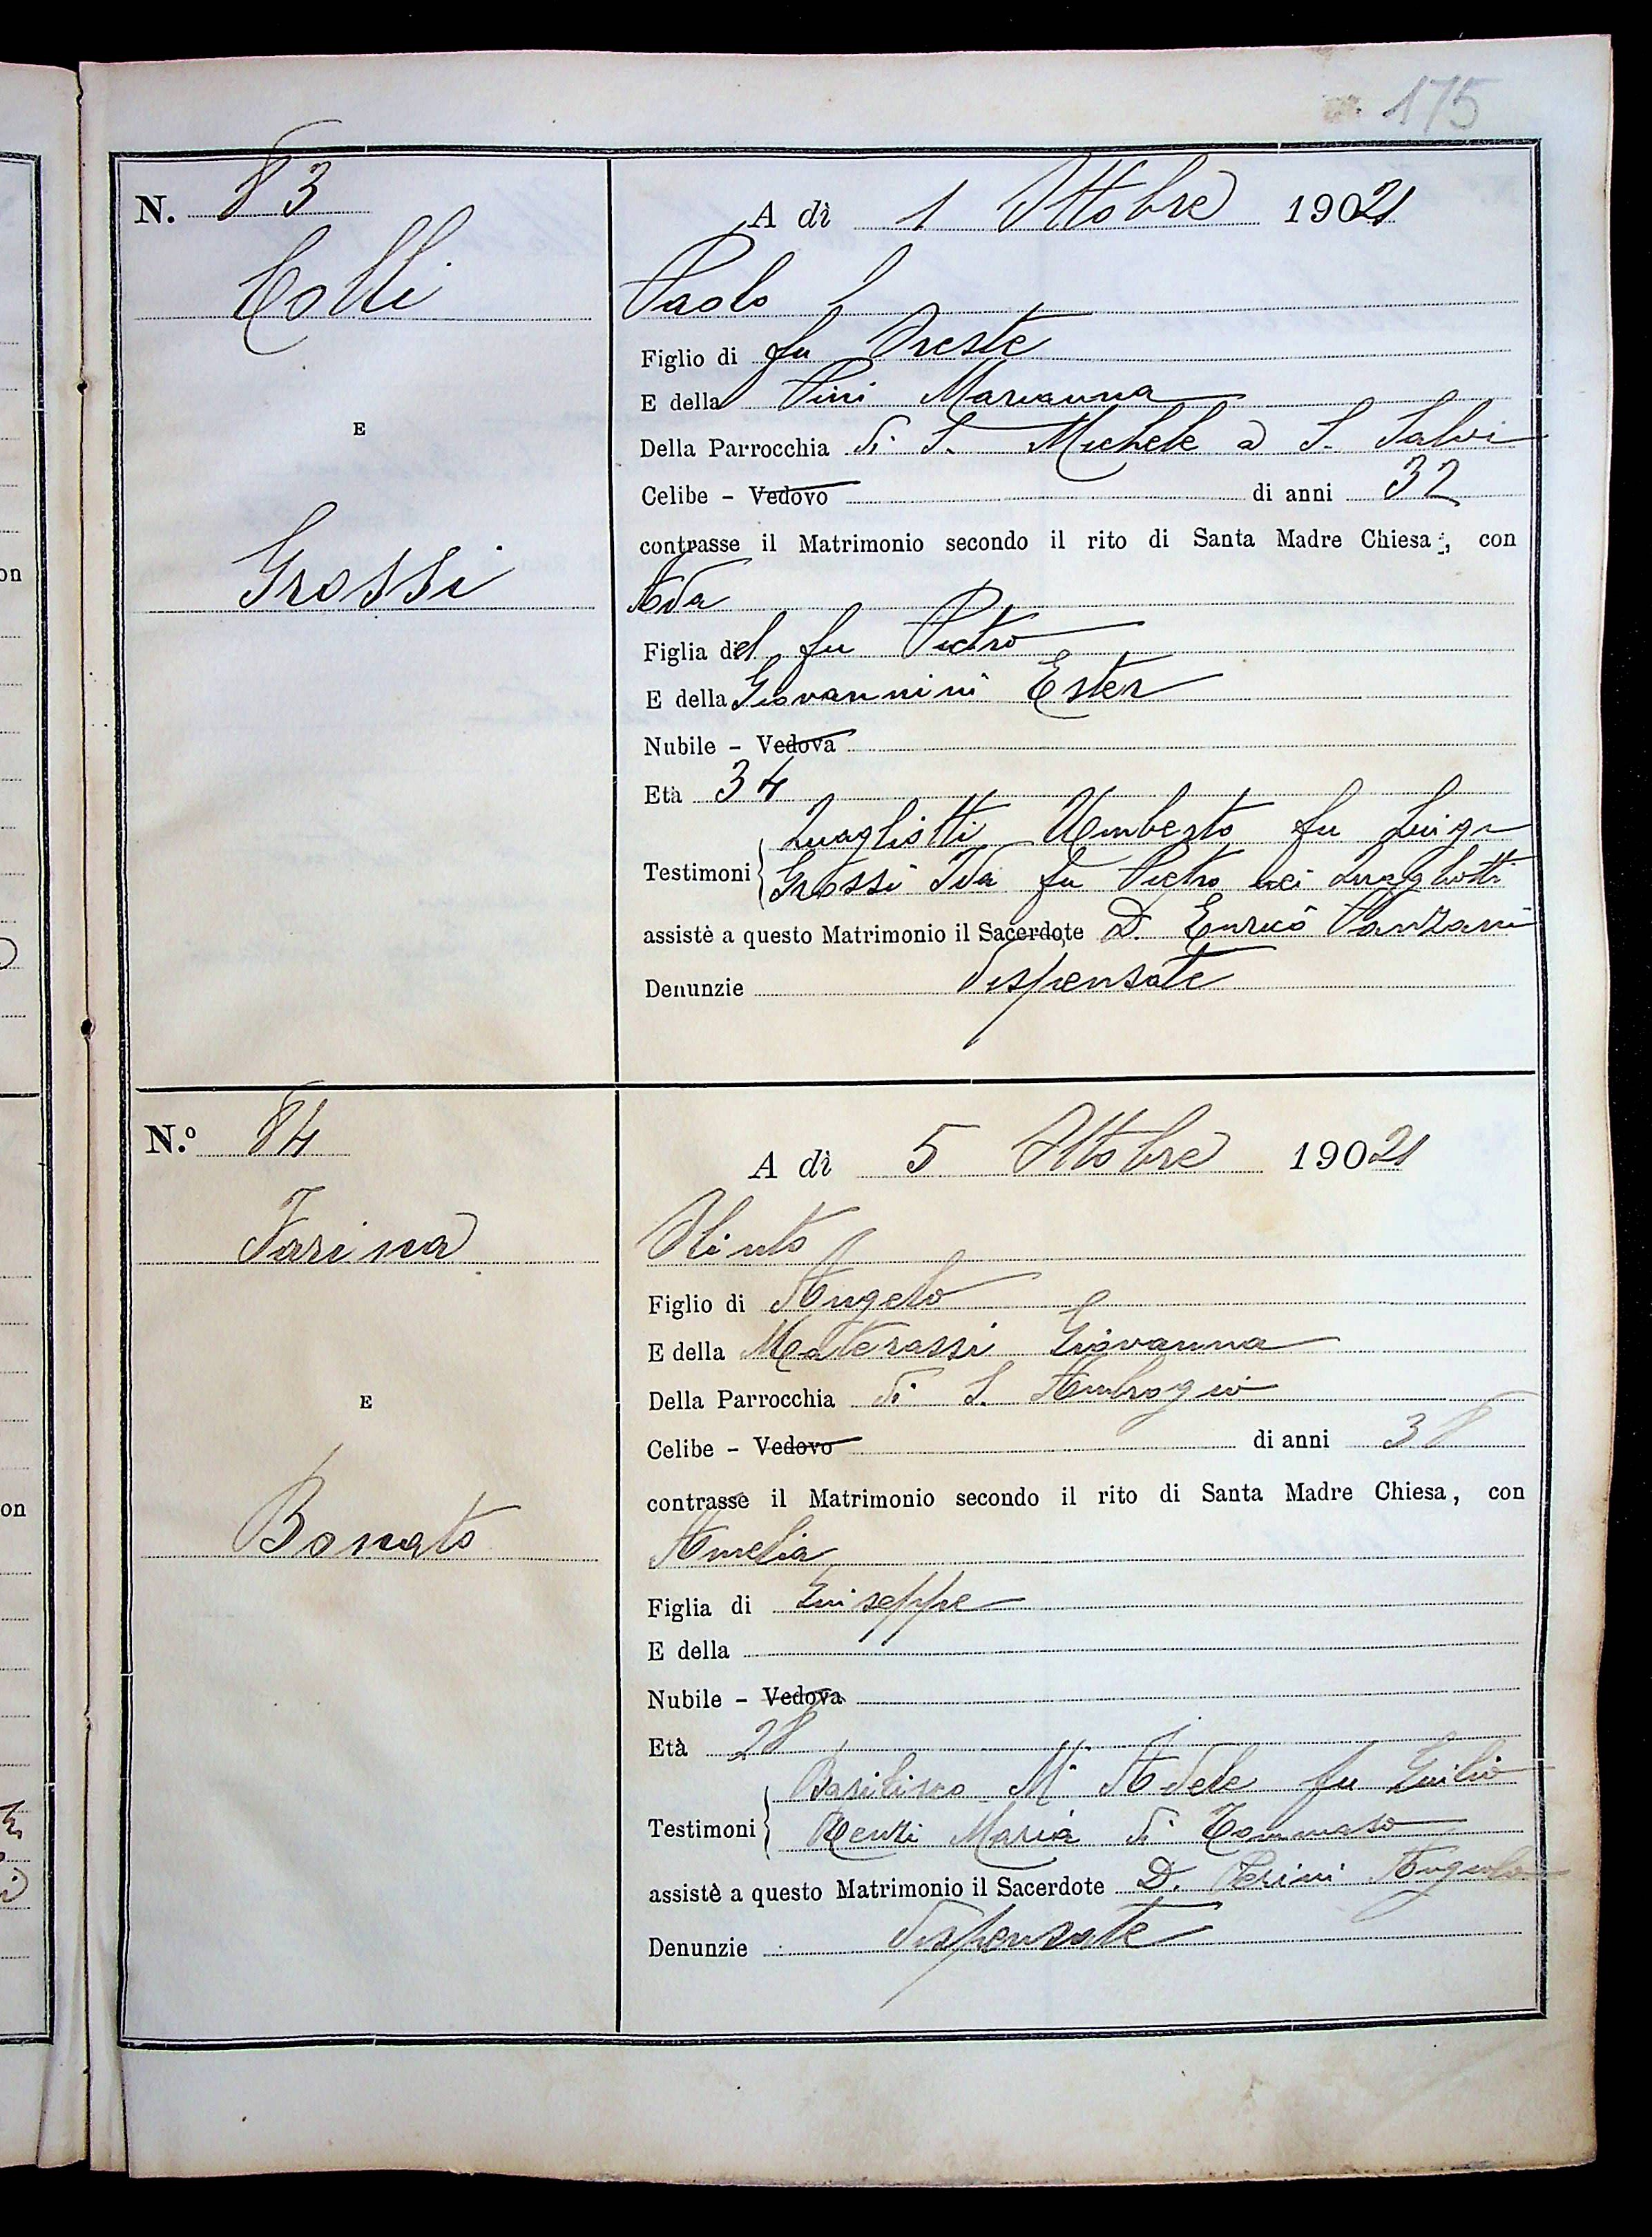 175
N. 83
A dì 1 Ottobre 19021
Colli
Paolo
Figlio di fu Oreste
E della Pini Marianna
E
Della Parrocchia di S. Michele a S. Salvi
Celibe - Vedovo di anni 32
contrasse il Matrimonio secondo il rito di Santa Madre Chiesa, con
Grossi
Ada
Figlia del fu Pietro
E della Giovannini Ester
Nubile - Vedova
Età 34
Quagliotti Umberto fu Luigi
Testimoni
Grossi Ida fu Pietro nei Quagliotti
assistè a questo Matrimonio il Sacerdote D. Enrico
Denunzie dispensate
N.º 84
A dì 5 Ottobre 19021
Farina
Olinto
Figlio di Angelo
E della Materassi Giovanna
E
Della Parrocchia di S. Ambrogio
Celibe - Vedovo di anni 38
contrasse il Matrimonio secondo il rito di Santa Madre Chiesa, con
Bonato
Amelia
Figlia di Giuseppe
E della
Nubile - Vedova
Età 28
Mª Adele fu Giulio
Testimoni
Renzi Maria di Tommaso
assistè a questo Matrimonio il Sacerdote D. Perini Angelo
Denunzie dispensate